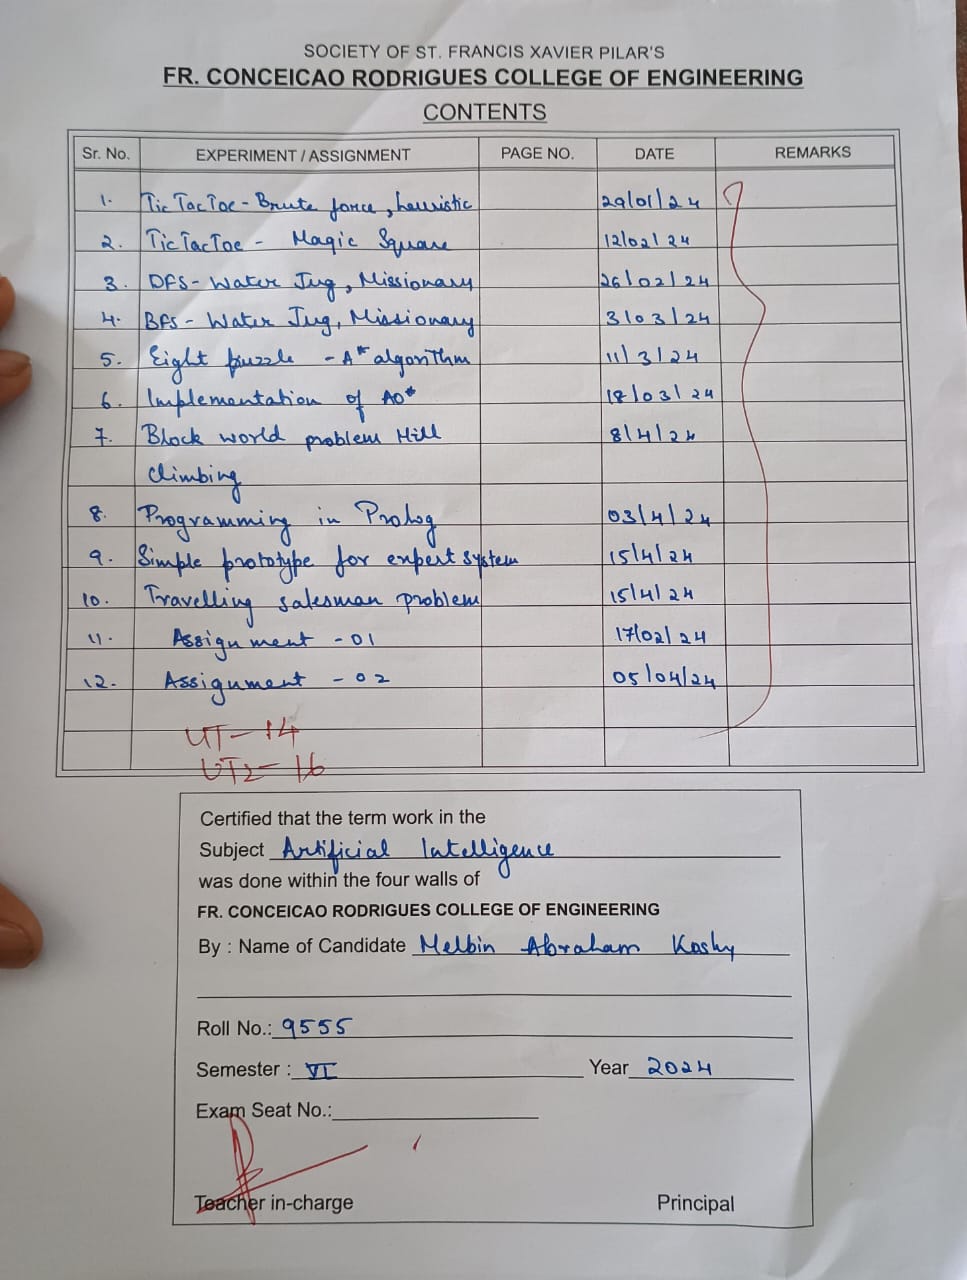 SOCIETY OF ST. FRANCIS XAVIER PILAR'S
FR. CONCEICAO RODRIGUES COLLEGE OF ENGINEERING
CONTENTS
Sr. No. EXPERIMENT / ASSIGNMENT PAGE NO. DATE REMARKS
1. Tic Tac Toe - Brute force, heuristic 29/01/24
2. Tic Tac Toe - Magic Square 12/02/24
3. DFS - Water Jug, Missionary 26/02/24
4. BFS - Water Jug, Missionary 3/03/24
5. Eight puzzle - A* algorithm 11/3/24
6. Implementation of AO* 18/03/24
7. Block world problem Hill 8/4/24
climbing
8. Programming in Prolog 03/4/24
9. Simple prototype for expert system 15/4/24
10. Travelling salesman problem 15/4/24
11. Assignment - 01 17/02/24
12. Assignment - 02 05/04/24
UT - 14
UT2 - 16
Certified that the term work in the
Subject Artificial Intelligence
was done within the four walls of
FR. CONCEICAO RODRIGUES COLLEGE OF ENGINEERING
By : Name of Candidate Melbin Abraham Koshy
Roll No.: 9555
Semester : VI Year 2024
Exam Seat No.:
Teacher in-charge Principal